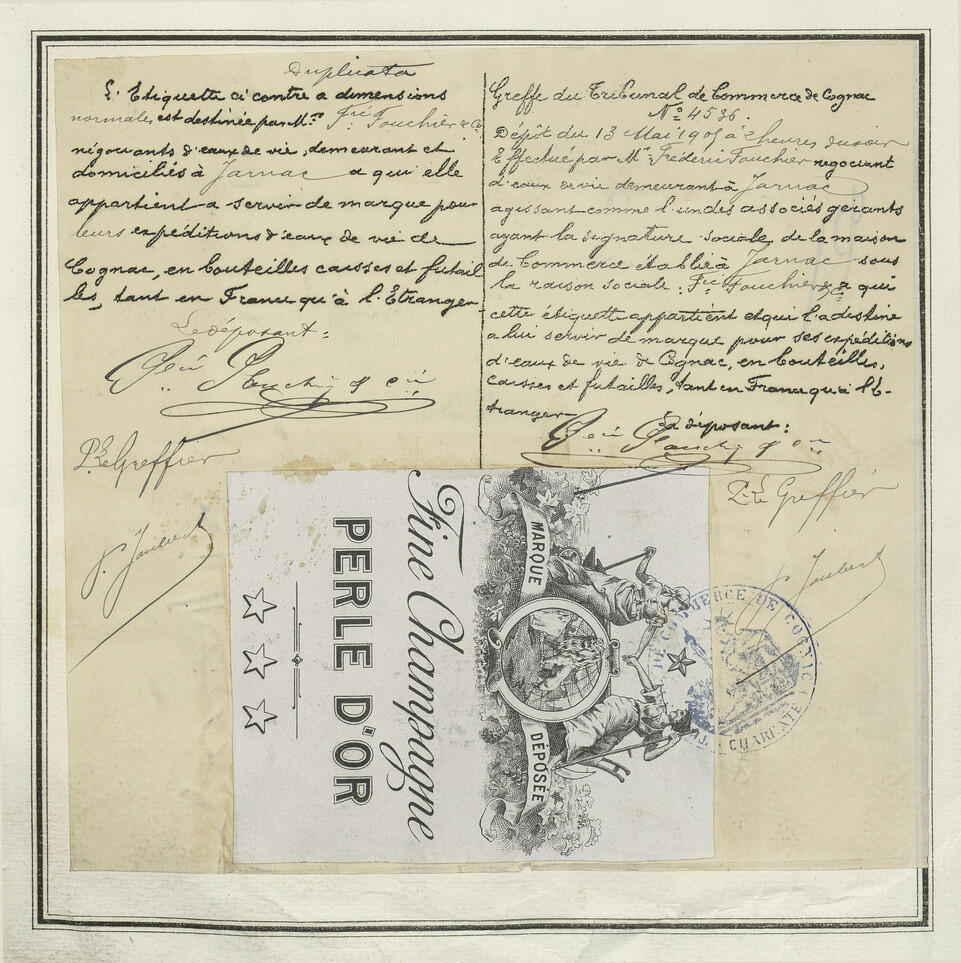 Duplicata
L'Etiquette ci contre a dimensions
normales est destinée par Mrs Fric Fouchier & Cie
négociants d'eaux de vie, demeurant et
domiciliés à Jarnac a qui elle
appartient a servir de marque pour
leurs expéditions d'eaux de vie de
Cognac, en bouteilles caisses et futail
les, tant en France qu'à l'Etranger
Le déposant:
Pr le Greffier
P. Joubert
Greffe du Tribunal de Commerce de Cognac
No 4536.
Dépôt du 13 Mai 1905 à 2 heures du soir
Effectué par Mr Frédéric Fouchier negociant
d'eaux de vie demeurant à Jarnac
agissant comme l'un des associés gérants
ayant la signature sociale, de la maison
de Commerce établie à Jarnac sous
la raison sociale: Fric Fouchier & Cie a qui
cette étiquette appartient et qui l'a destine
a lui servir de marque pour ses expéditions
d'eaux de vie de Cognac, en bouteilles,
caisses et futailles, tant en France qu'à l'E-
tranger
Le déposant:
Pr Le Greffier
P. Joubert
MARQUE
DÉPOSÉE
Fine Champagne
PERLE D'OR
DE COMMERCE DE COGNAC
CHARENTE